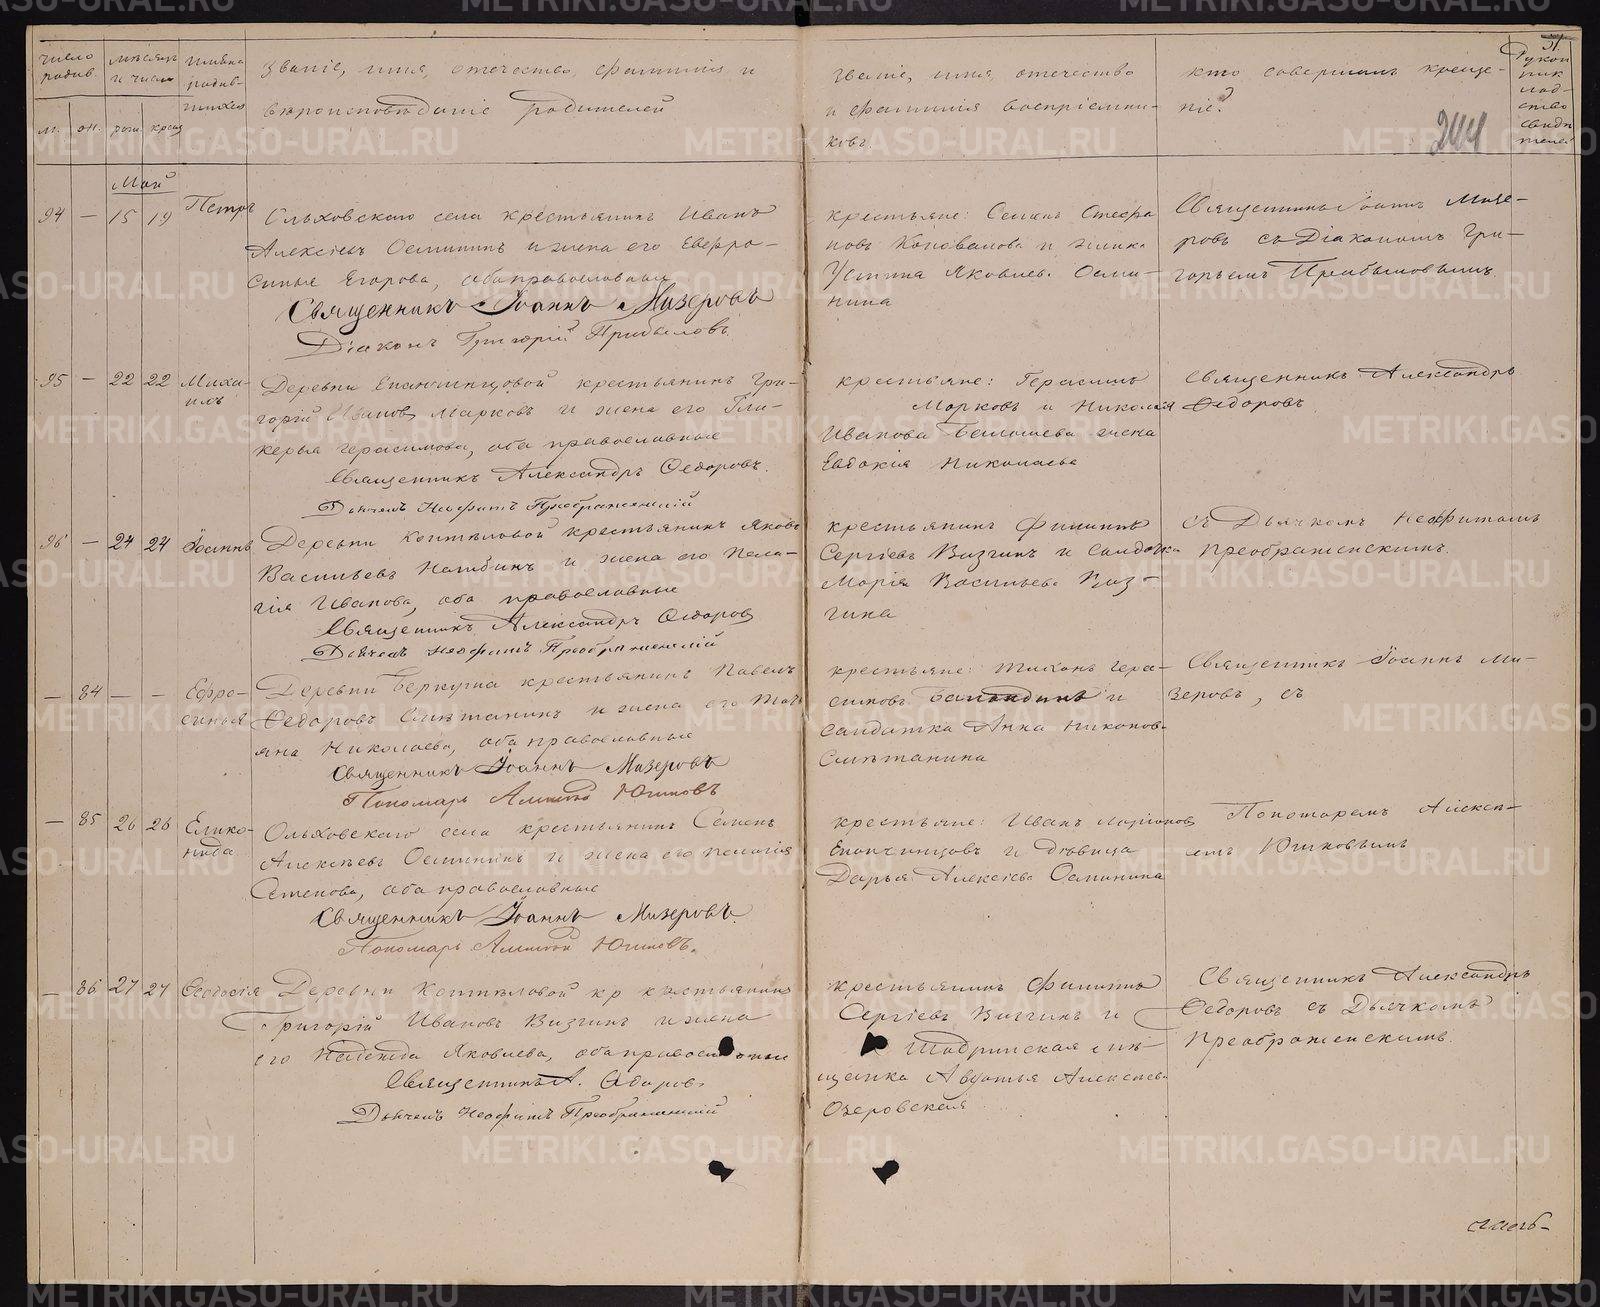 число родив.
мѣсяцъ и число
имена родив-шихся
званіе, имя, отечество, фамилія и
вѣроисповѣданіе родителей
м. он. рож. крещ.
званіе, имя, отечество
и фамилія воспріемни-
ковъ.
кто совершалъ креще-
ніе?
51.
244
Рукоп
Май
94 — 15 19 Петръ
Ольховскаго села крестьянинъ Иванъ
Алексѣевъ Осминина и жена его Евфро-
синья Егорова, оба православные
Священникъ Іоаннъ Мизеровъ
Діаконъ Григорій Прибыловъ.
крестьяне: Семенъ Стефа
новъ Коновалова и жинка
Устина Яковлев. Осми-
нина
Священникъ Іоаннъ Мизе-
ровъ съ Діакономъ Гри-
горьемъ Прибыловымъ.
95 — 22 22 Миха-
илъ
Деревни Епанчинцовой крестьянинъ Гри-
горій Ивановъ Марковъ и жена его Гли-
керья Герасимова, оба православные
Священникъ Александръ Ѳедоровъ.
Дьячекъ Неофитъ Преображенскій
крестьяне: Герасимъ
Марковъ и Николая
Иванова жена
Евдокія Николаева
Священникъ Александръ
Ѳедоровъ
96 — 24 24 Іоаннъ
Деревни Коптяловой крестьянинъ Яковъ
Васильевъ и жена его Пела-
гія Иванова, оба православные
Священникъ Александръ Ѳедоров
Дьячекъ Неофитъ Преображенскій
крестьянинъ Филиппъ
Сергѣевъ Визгинъ и солдатка
Марія Васильева Виз-
гина
съ Дьячкомъ Неофитомъ
Преображенскимъ.
— 84 — — Ефро-
синья
Деревни Беркутиа крестьянинъ Павелъ
Ѳедоровъ Смѣтанинъ и жена его Тать
яна Николаева, оба православные
Священникъ Іоаннъ Мизеровъ
Пономарь Югиновъ
крестьяне: Тихонъ Гера-
симовъ и
солдатка Анна Никонов.
Смѣтанина
Священникъ Іоаннъ Ми-
зеровъ, съ
— 85 26 26 Елико-
нида
Ольховскаго села крестьянинъ Семенъ
Алексѣевъ Осмининъ и жена его Пелагія
Семенова, оба православные
Священникъ Іоаннъ Мизеровъ.
Пономарь Югиновъ.
крестьяне: Иванъ Ларіоновъ
Епанчинцовъ и дѣвица
Дарья Алексѣева Осминина
Пономаремъ Алекси-
емъ
— 86 27 27 Ѳеодосія
Деревни Коптяловой кр крестьянинъ
Григорій Ивановъ Визгинъ и жена
его Надежда Яковлева, оба православные
Священникъ А. Ѳедоровъ
Дьячекъ Неофитъ Преображенскій
крестьянинъ Филиппъ
Сергѣевъ Визгинъ и
Шадринская мѣ-
щанка Авдотья Алексѣева
Озеровская
Священникъ Александръ
Ѳедоровъ съ Дьячкомъ
Преображенскимъ.